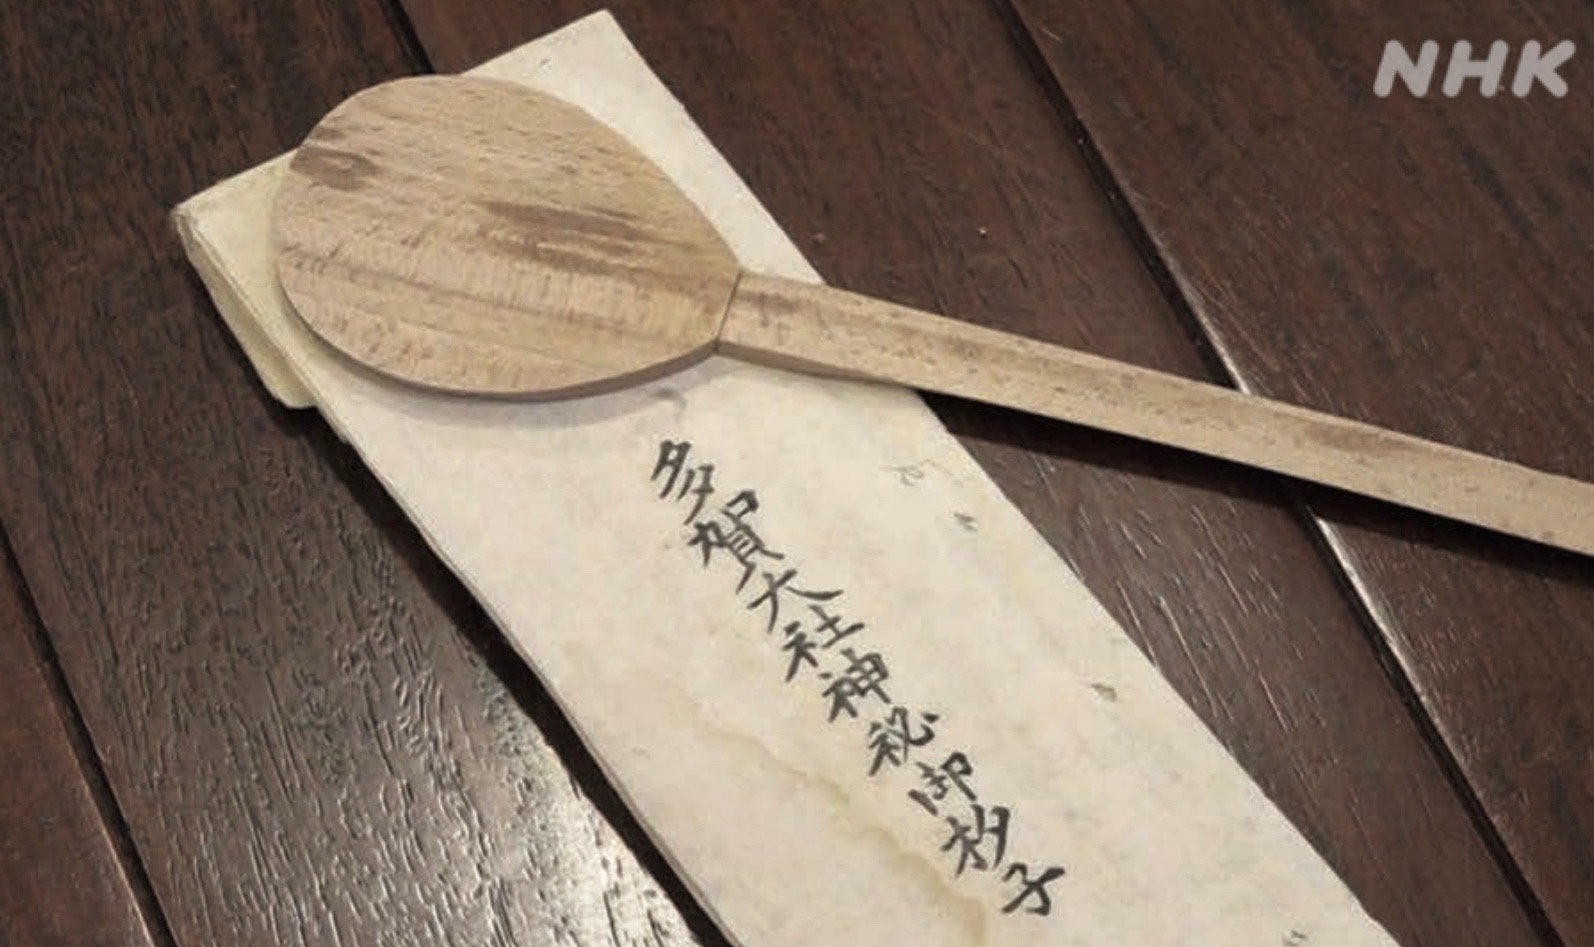 NHK
多賀大社神秘御杓子